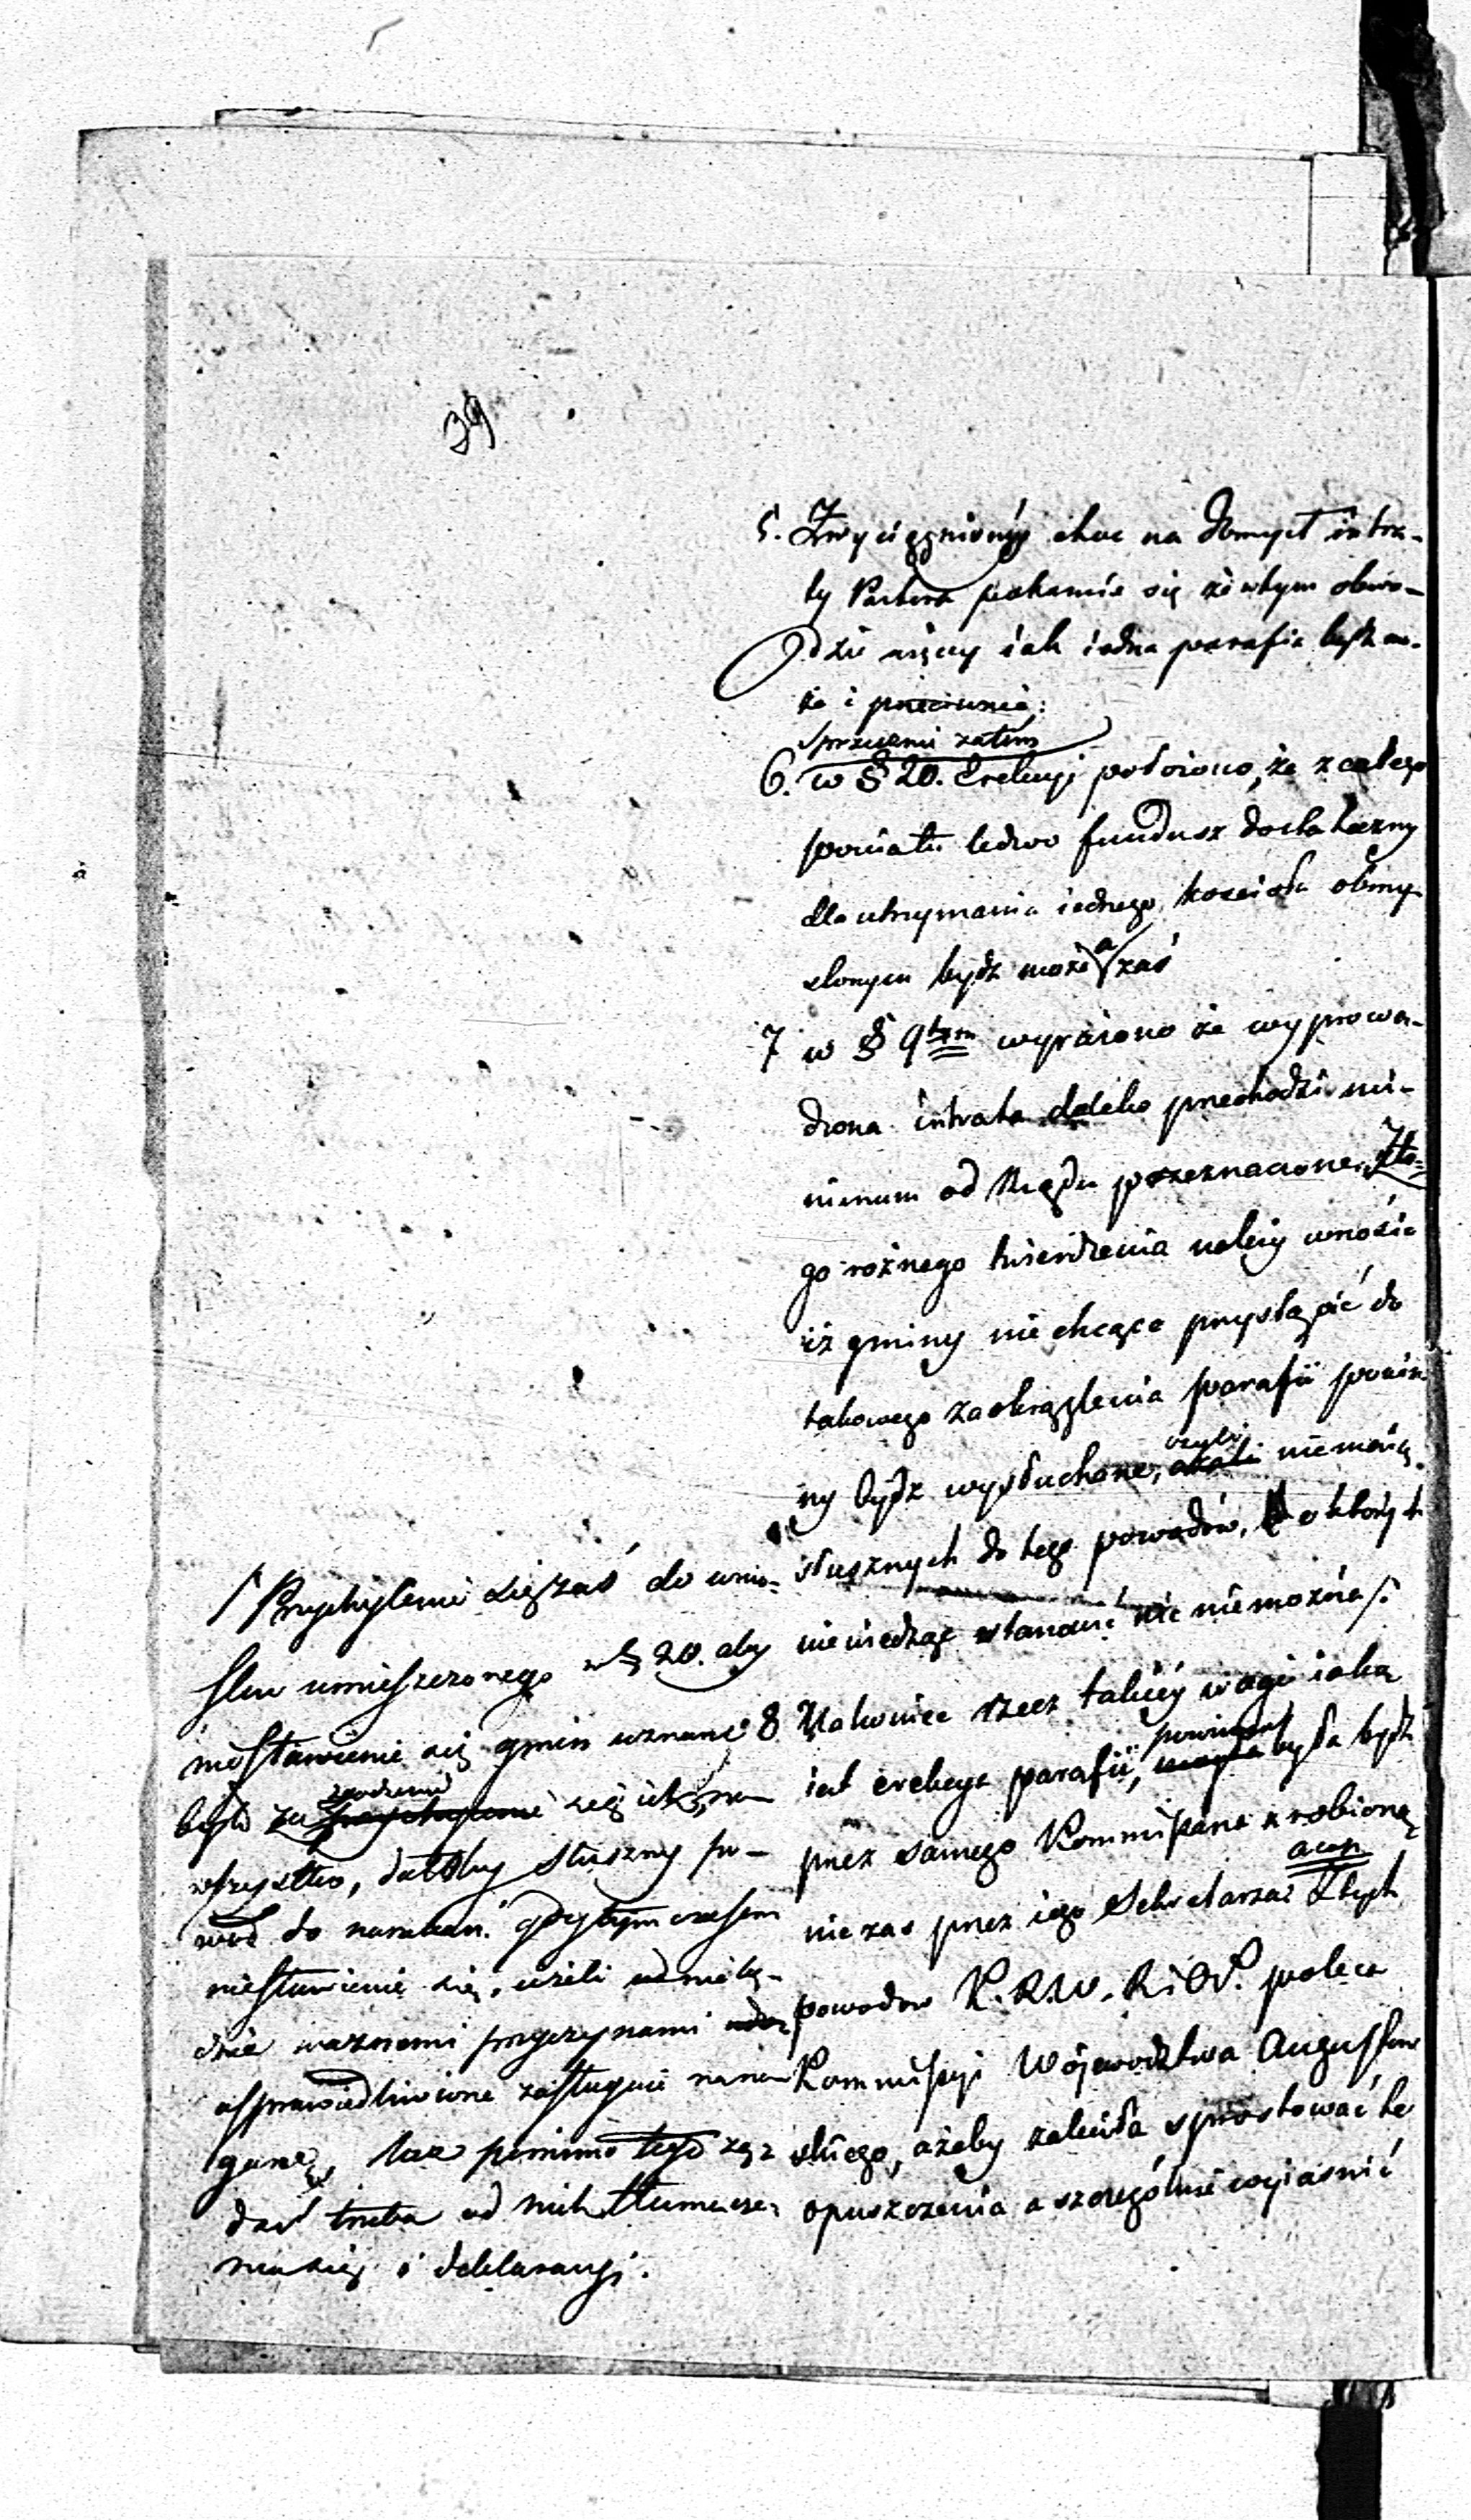 39
5. Zwyciągnioney choc na Domysł intra-
ty Pastora pokazuie się że w tym obwo-
dzie więcy iak iedna parafia bydź mo-
że i
sprzecznie zatem
6. w § 20. Erekcyi położono, że z całego
powiatu ledwo fundusz dostateczny
dla utrzymania iednego kościoła obmy-
slonym bydź może a zaś
7 w § 9tym wyrażono że wyprowa-
dzona intrata daleko przechodzi mi-
nimum od Rządu przeznaczone. Z te-
go rożnego twierdzenia należy wnosić
iż gminy nie chcące przystąpić do
takowego zaokrąglenia parafii powin-
ny bydź wysłuchane, czyli nie maią
słusznych do tego powodów, o których
niewiedząc stanowić nic nie można /.
8 Nakoniec rzecz takiey wagi iaką
iest erekcya parafii, powinna była bydź
przez samego Kommissarza zrobioną
nie zas przez iego Sekretarza: acup
Z tych
powodow K.R.W.R.i O.P. poleca
Kommissyi Woiewodztwa Augustow-
skiego, ażeby zaleciła sprostować te
opuszczenia a szczególnie wyiasnić
/ Przychylenie się zaś do wnio-
sku umieszczonego w § 20. aby
niestawienie się gmin uznane
było za zgodzenie się ich, na
wszystko, dałoby słuszny po-
wód do narzekań. gdy tymczasem
niestawienie się, ieżeli nie bę-
dzie waznemi przyczynami
usprawiedliwione zasługuie na na-
ganę, lecz pomimo tego żą-
dać trzeba od nich tłumacze-
nia się i deklaracyi.